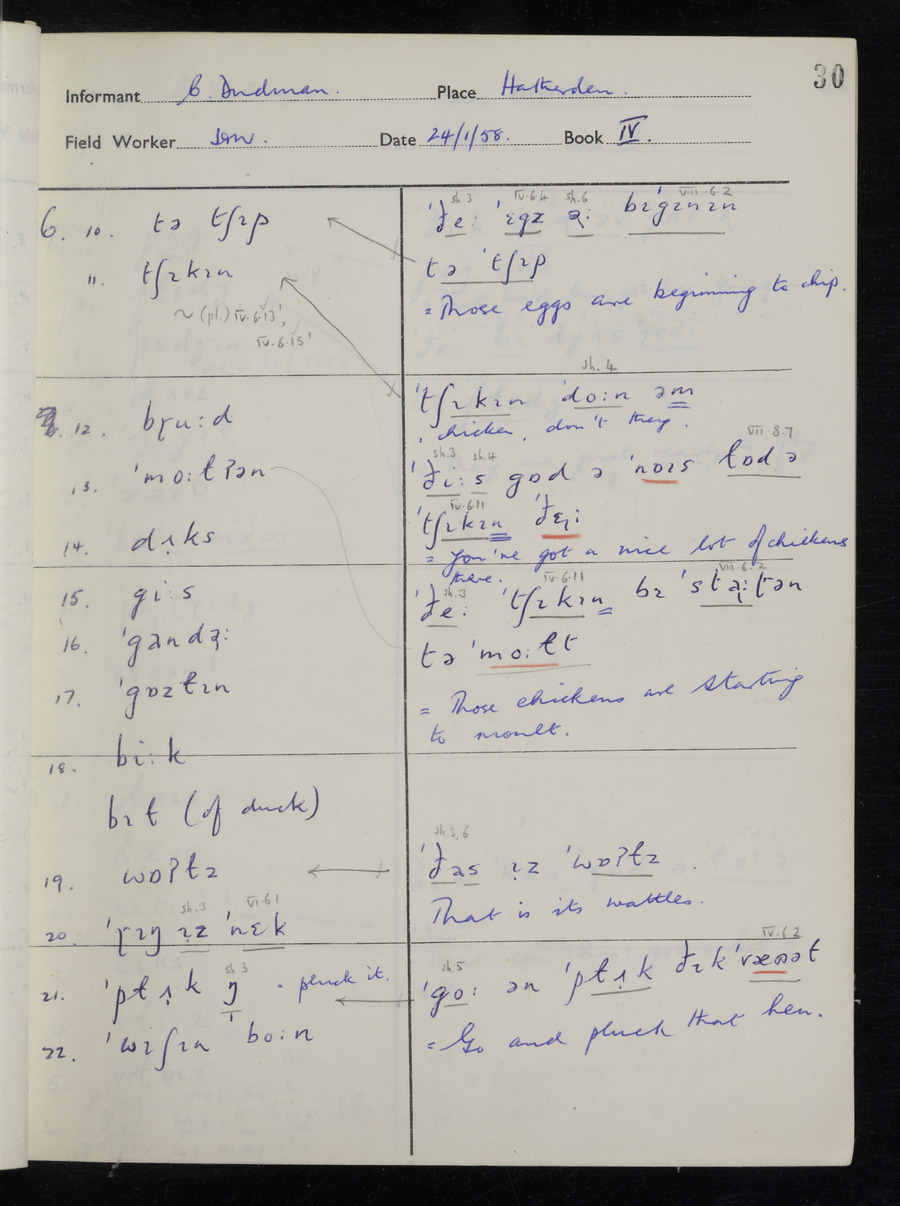 30
Informant B. Dudman. Place Hatherden.
Field Worker Date 24/1/58. Book IV.
6. 10. tə tʃɪp
". tʃɪkɪn
~ (pl.) IV.6.13', IV.6.15'
12. bɽu:d
13. 'mo:ɫʔən
14. dʌ̣ks
15. gi:s
16. 'gandə̣:
17. 'gɒzɫɪn
18. bi:k
bɪɫ (of duck)
19. wɒʔɫz
sh.3 VI.6.1
20. 'ɽɪŋ ɪz 'nɛk
sh 3
21. = pluck it.
22. 'wɪʃɪn bo:n
sh.3 IV.6.4 sh.6 VIII.6.2
'ðe: 'ɛgz ə̣: bɪ'gɪnɪn
tə 'tʃɪp
= Those eggs are beginning to chip.
sh. 4
'tʃɪkɪn 'do:n əm
= chicken, don't they.
sh.3 sh.4 VII.8.7
'ði:s gɒd ə 'nɒɪs ɫɒd ə
IV.6.11
'tʃɪkɪn 'ðɛɽ:
= You've got a nice lot of chickens
there.
sh.3 IV.6.11 VIII.6.2
'ðe: 'tʃɪkɪn bɪ 'sta̤:ʈən
tə 'mo:ɫt
= Those chickens are starting
to moult.
sh.3, 6
'ðas ɪz 'wɒʔɫz.
That is its wattles.
sh.5 IV.6.2
'go: ən
= Go and pluck that hen.